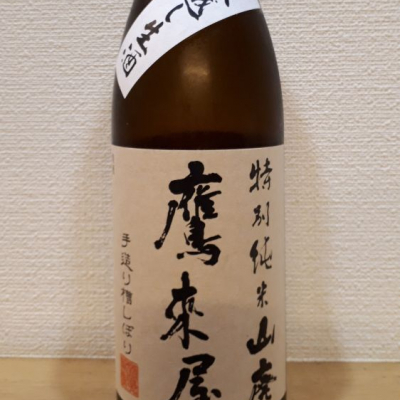 し生酒
特別純米山廃
鷹来屋
手造り槽しぼり